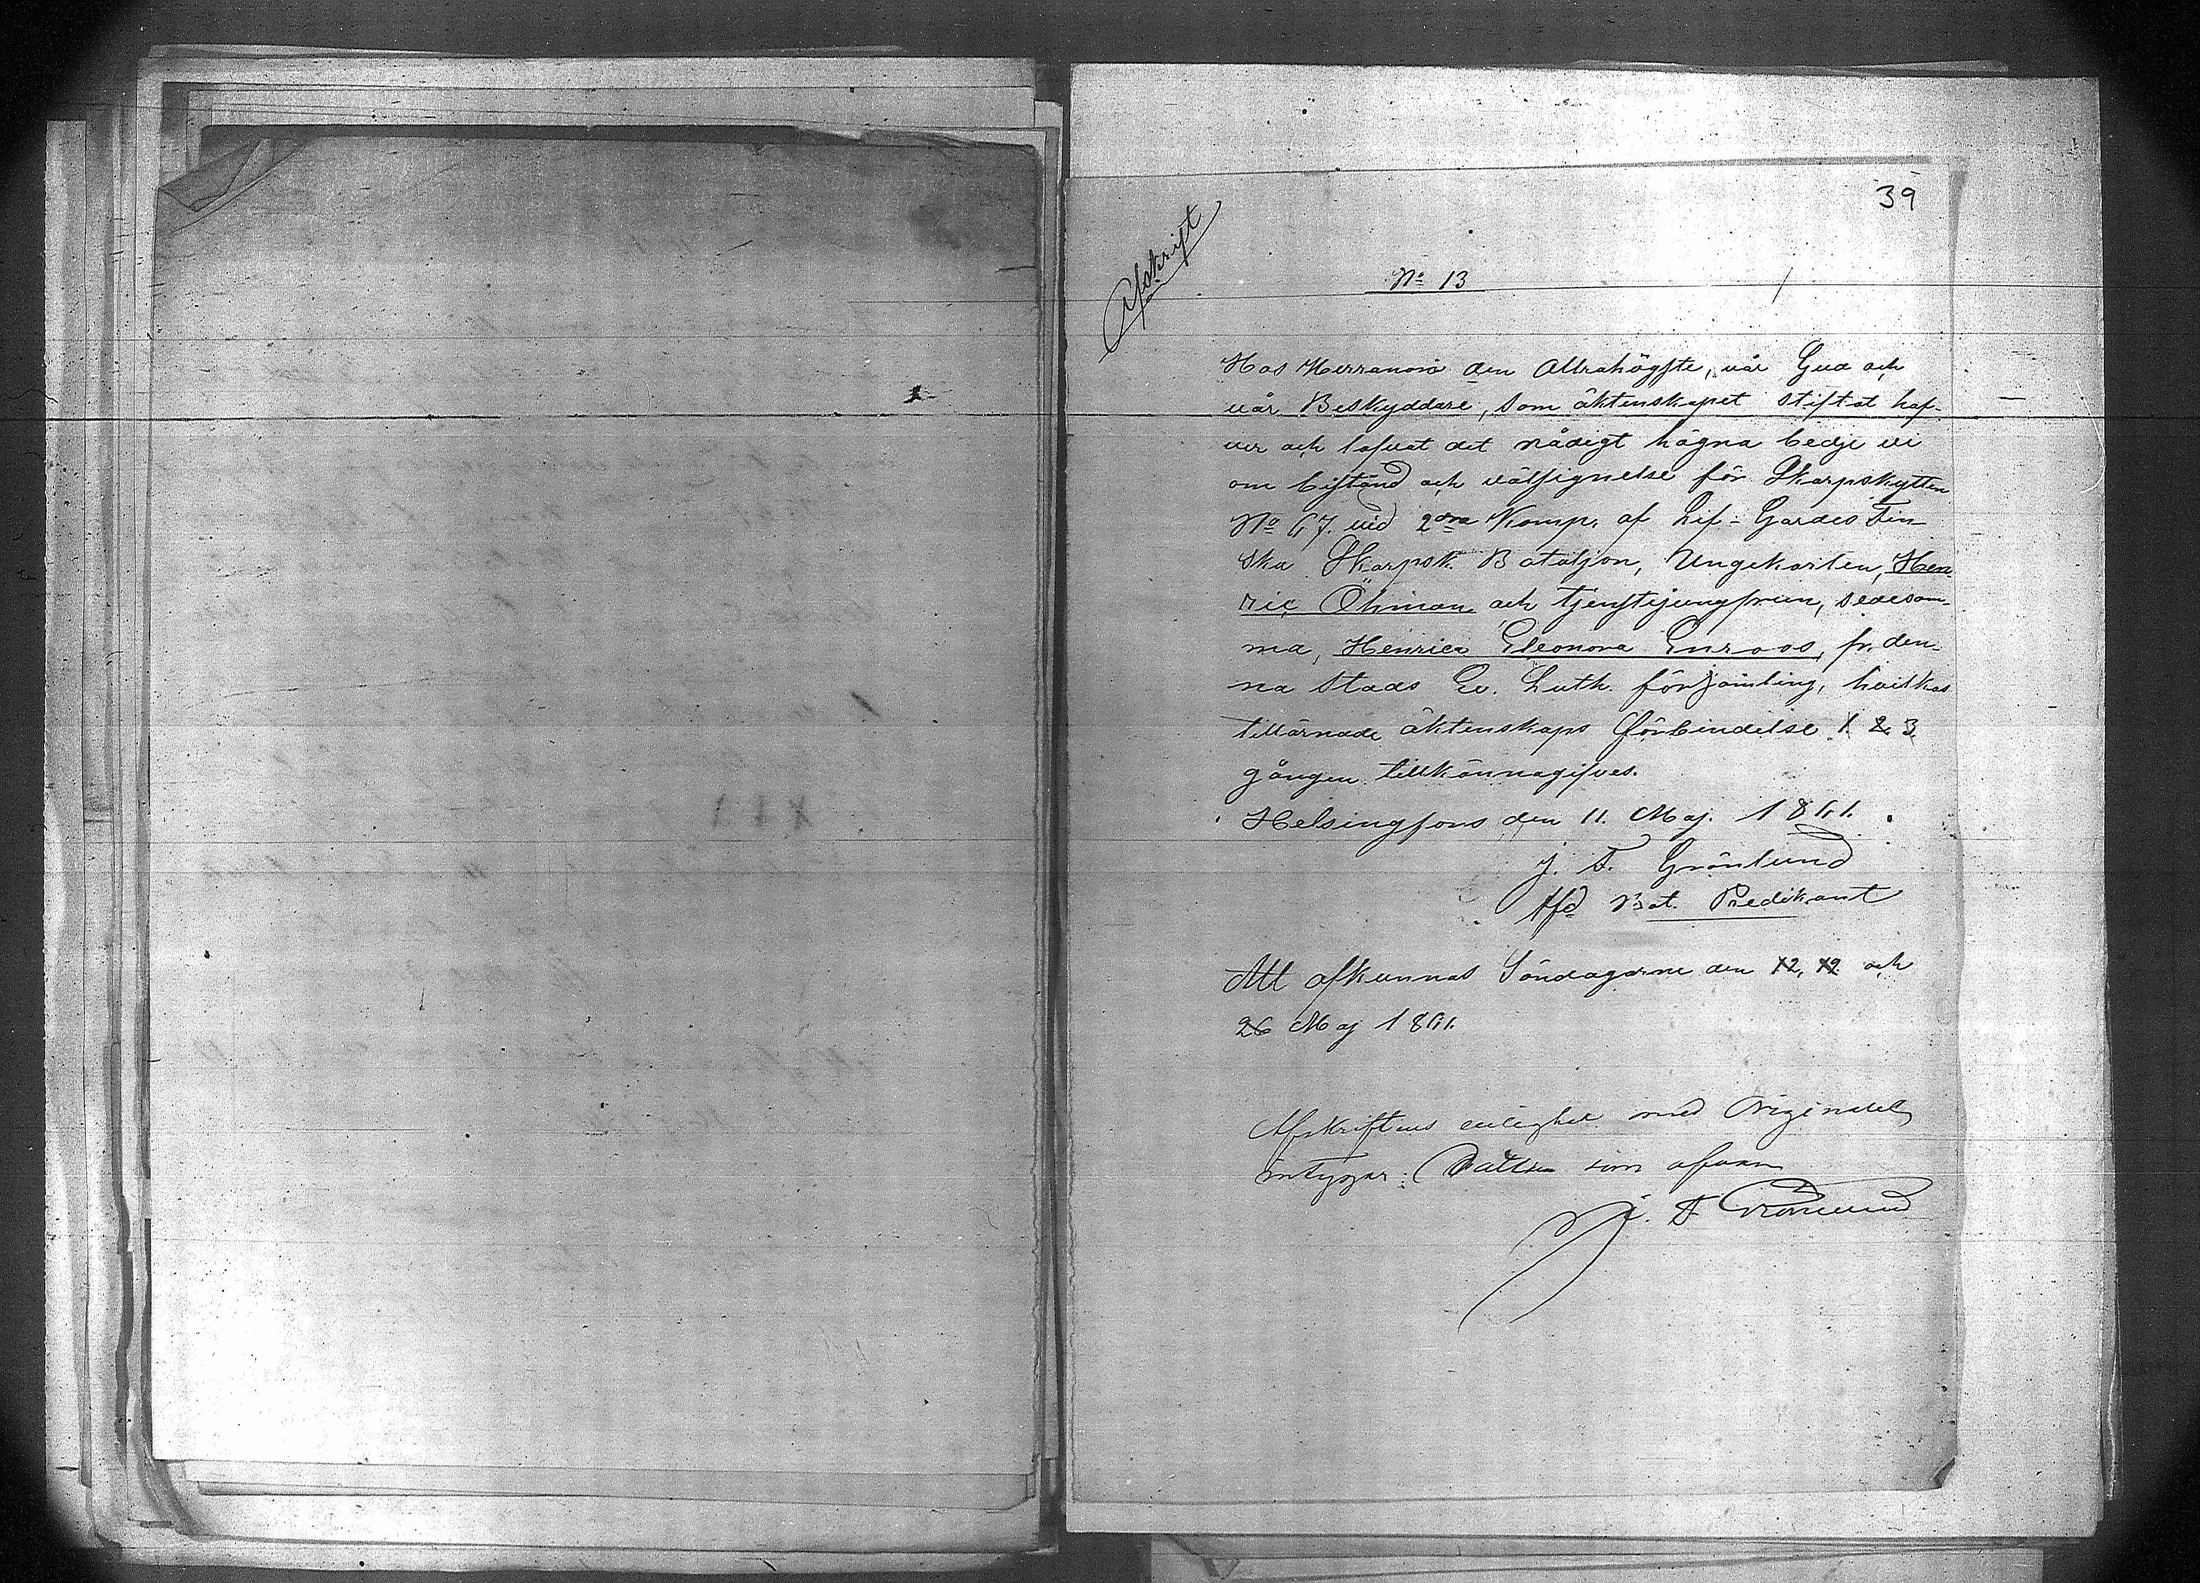 39
Afskrift
No 13
Hos Herranom den Allrahögste, vår Gud och
vår Beskyddare, som äktenskapet stiftat haf-
ver och lofvat det nådigt hägna bedje vi
om bistånd och välsignelse för Skarpskytten
No 67 vid 2dra Komp. af Lif-Gardes Fin
ska Skarpsk. Bataljon, Ungekarlen, Hen-
ric Öhman och tjenstejungfrun, sedesam-
ma, Henrica Eleonora Enroos, fr. den-
na Stads Ev. Luth. församling, hvilkas
tillärnade äktenskaps förbindelse 1. 2. 3.
gången tillkännagifves.
Helsingfors den 11. Maj. 1861.
J. F. Grönlund
Bat. Predikant
Att afkunnas Söndagarne den 12, 19 och
26 Maj 1861.
Afskriftens enlighet med Originalet
intygar: Datum som ofvan
J. F. Grönlund